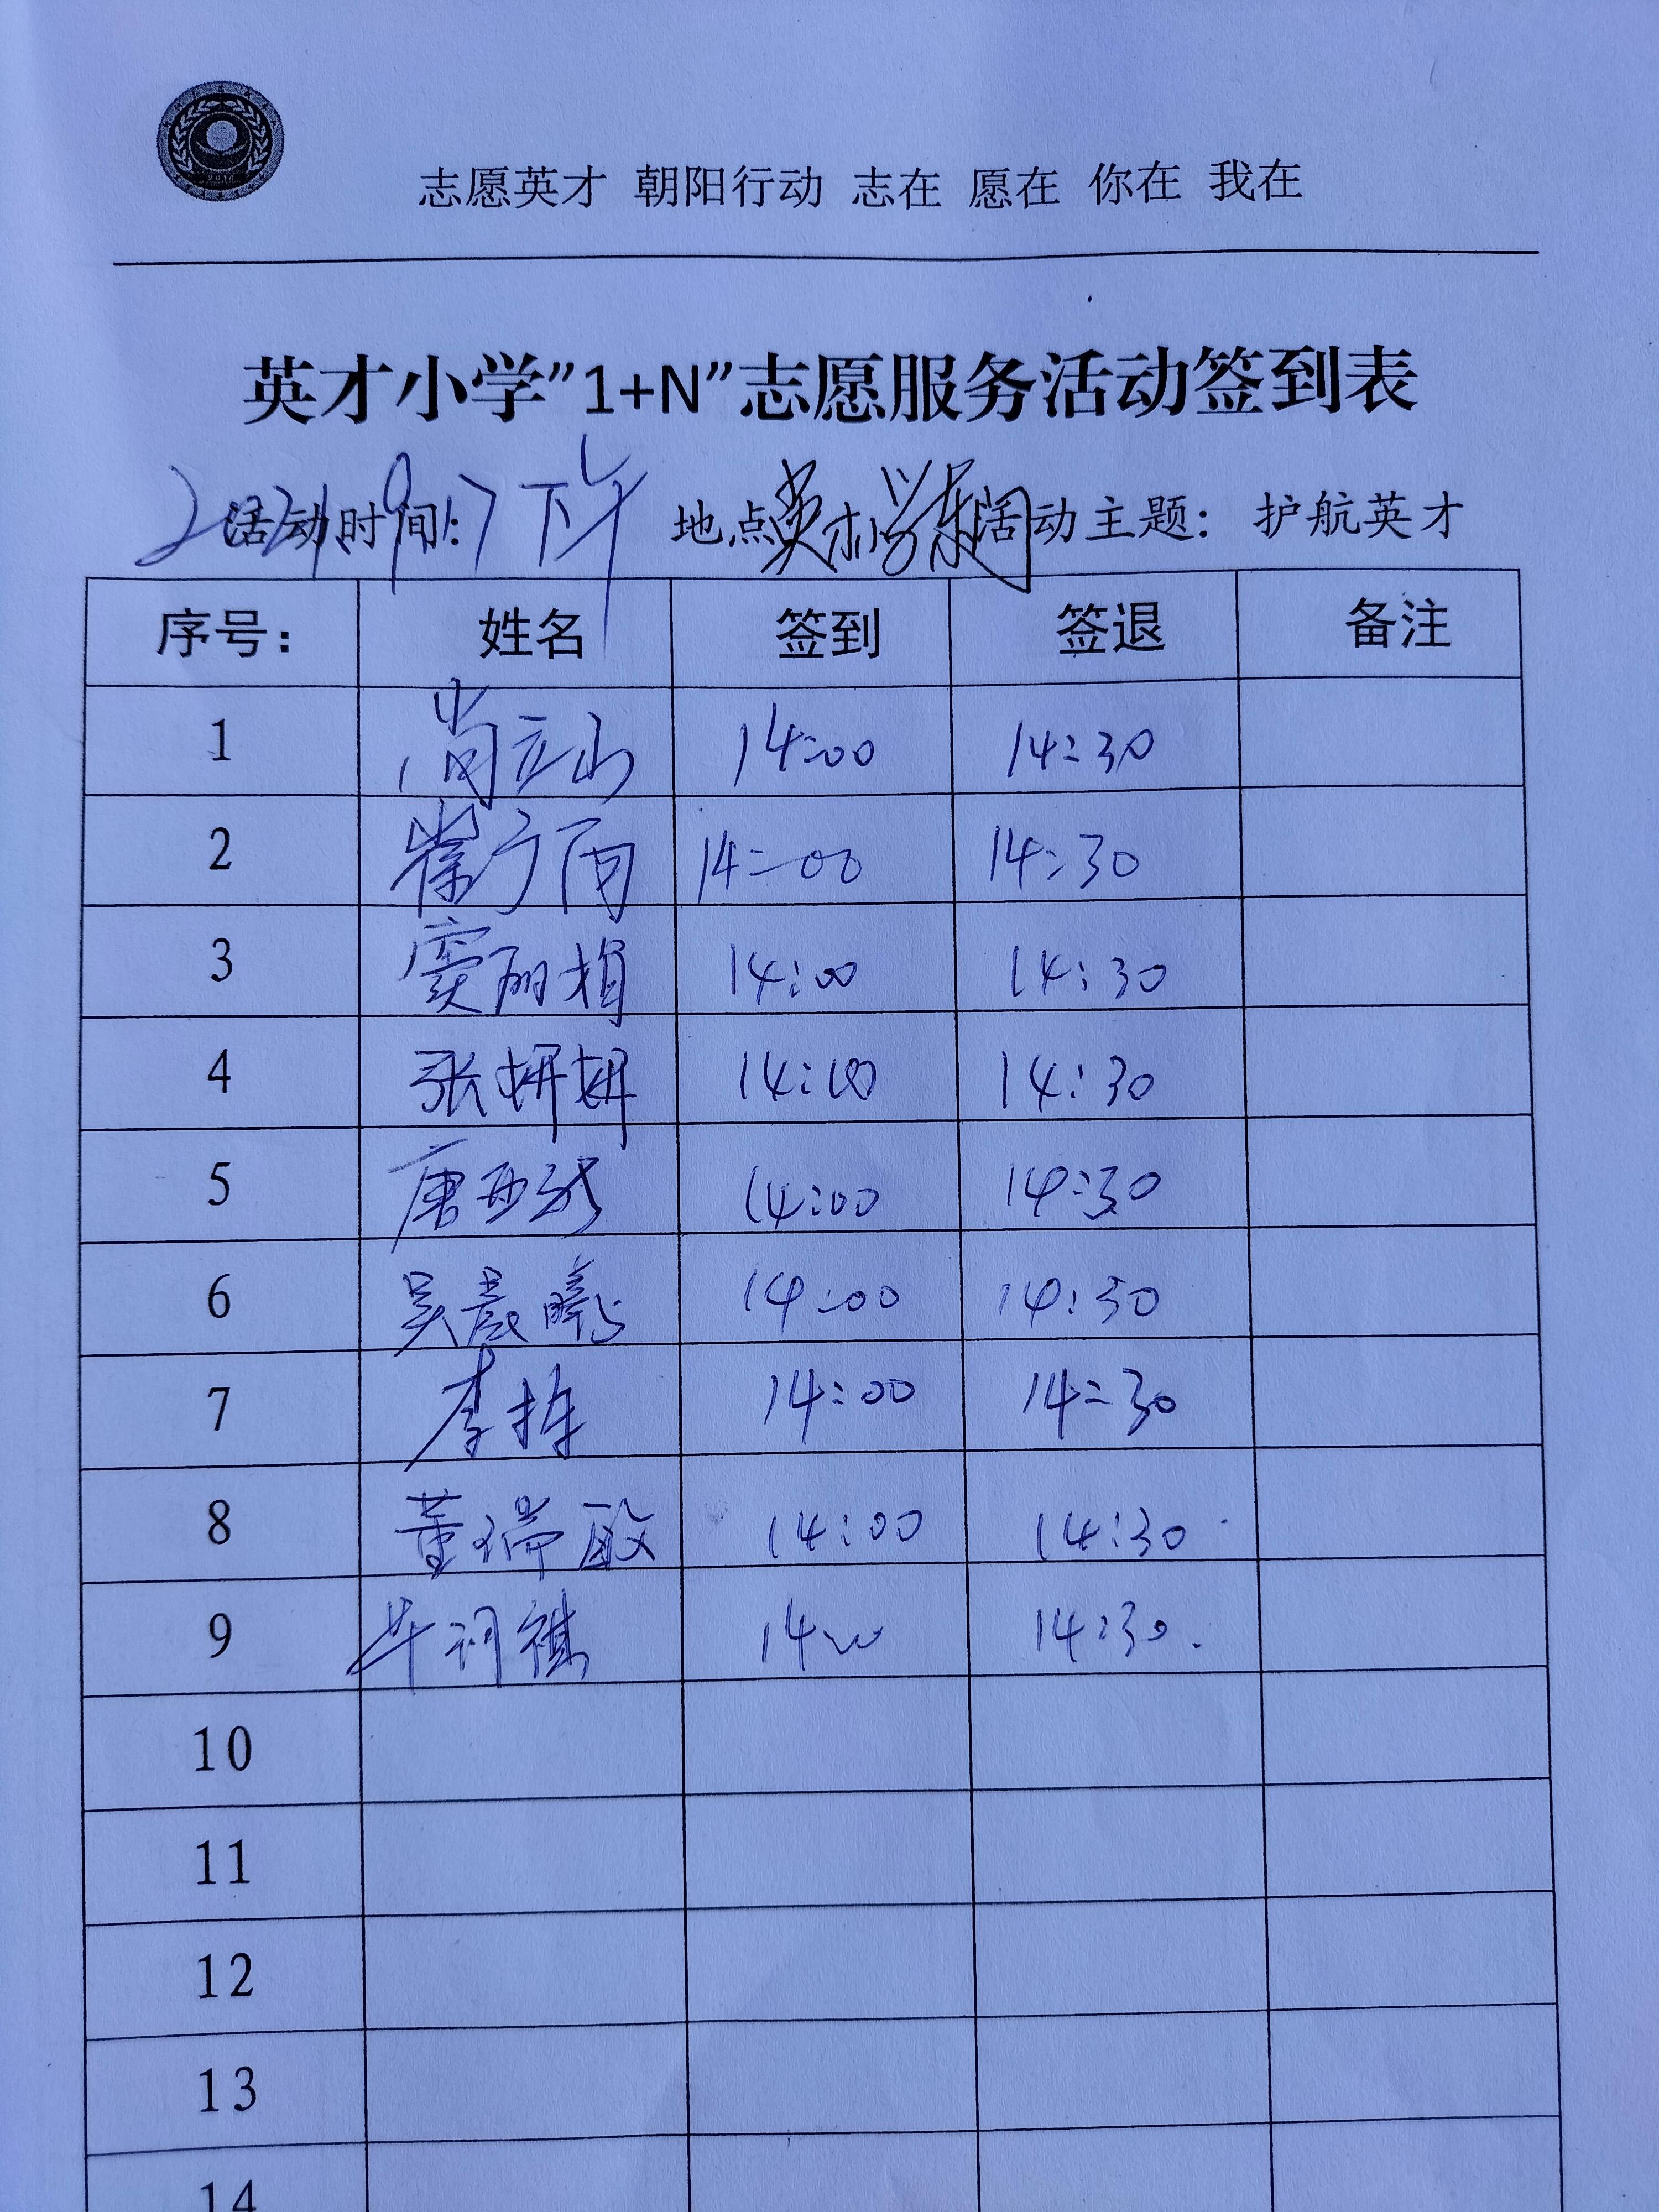 志愿英才 朝阳行动 志在 愿在 你在 我在
英才小学”1+N”志愿服务活动签到表
活动时间: 2021.9.17下午 地点 英才小学东门 活动主题: 护航英才
序号: 姓名 签到 签退 备注
1 尚立山 14:00 14:30
2 14:00 14:30
3 窦丽娟 14:00 14:30
4 张妍妍 14:00 14:30
5 14:00 14:30
6 吴晨曦 14:00 14:30
7 14:00 14:30
8 董瑞敏 14:00 14:30
9 毕词祺 14:00 14:30
10
11
12
13
14